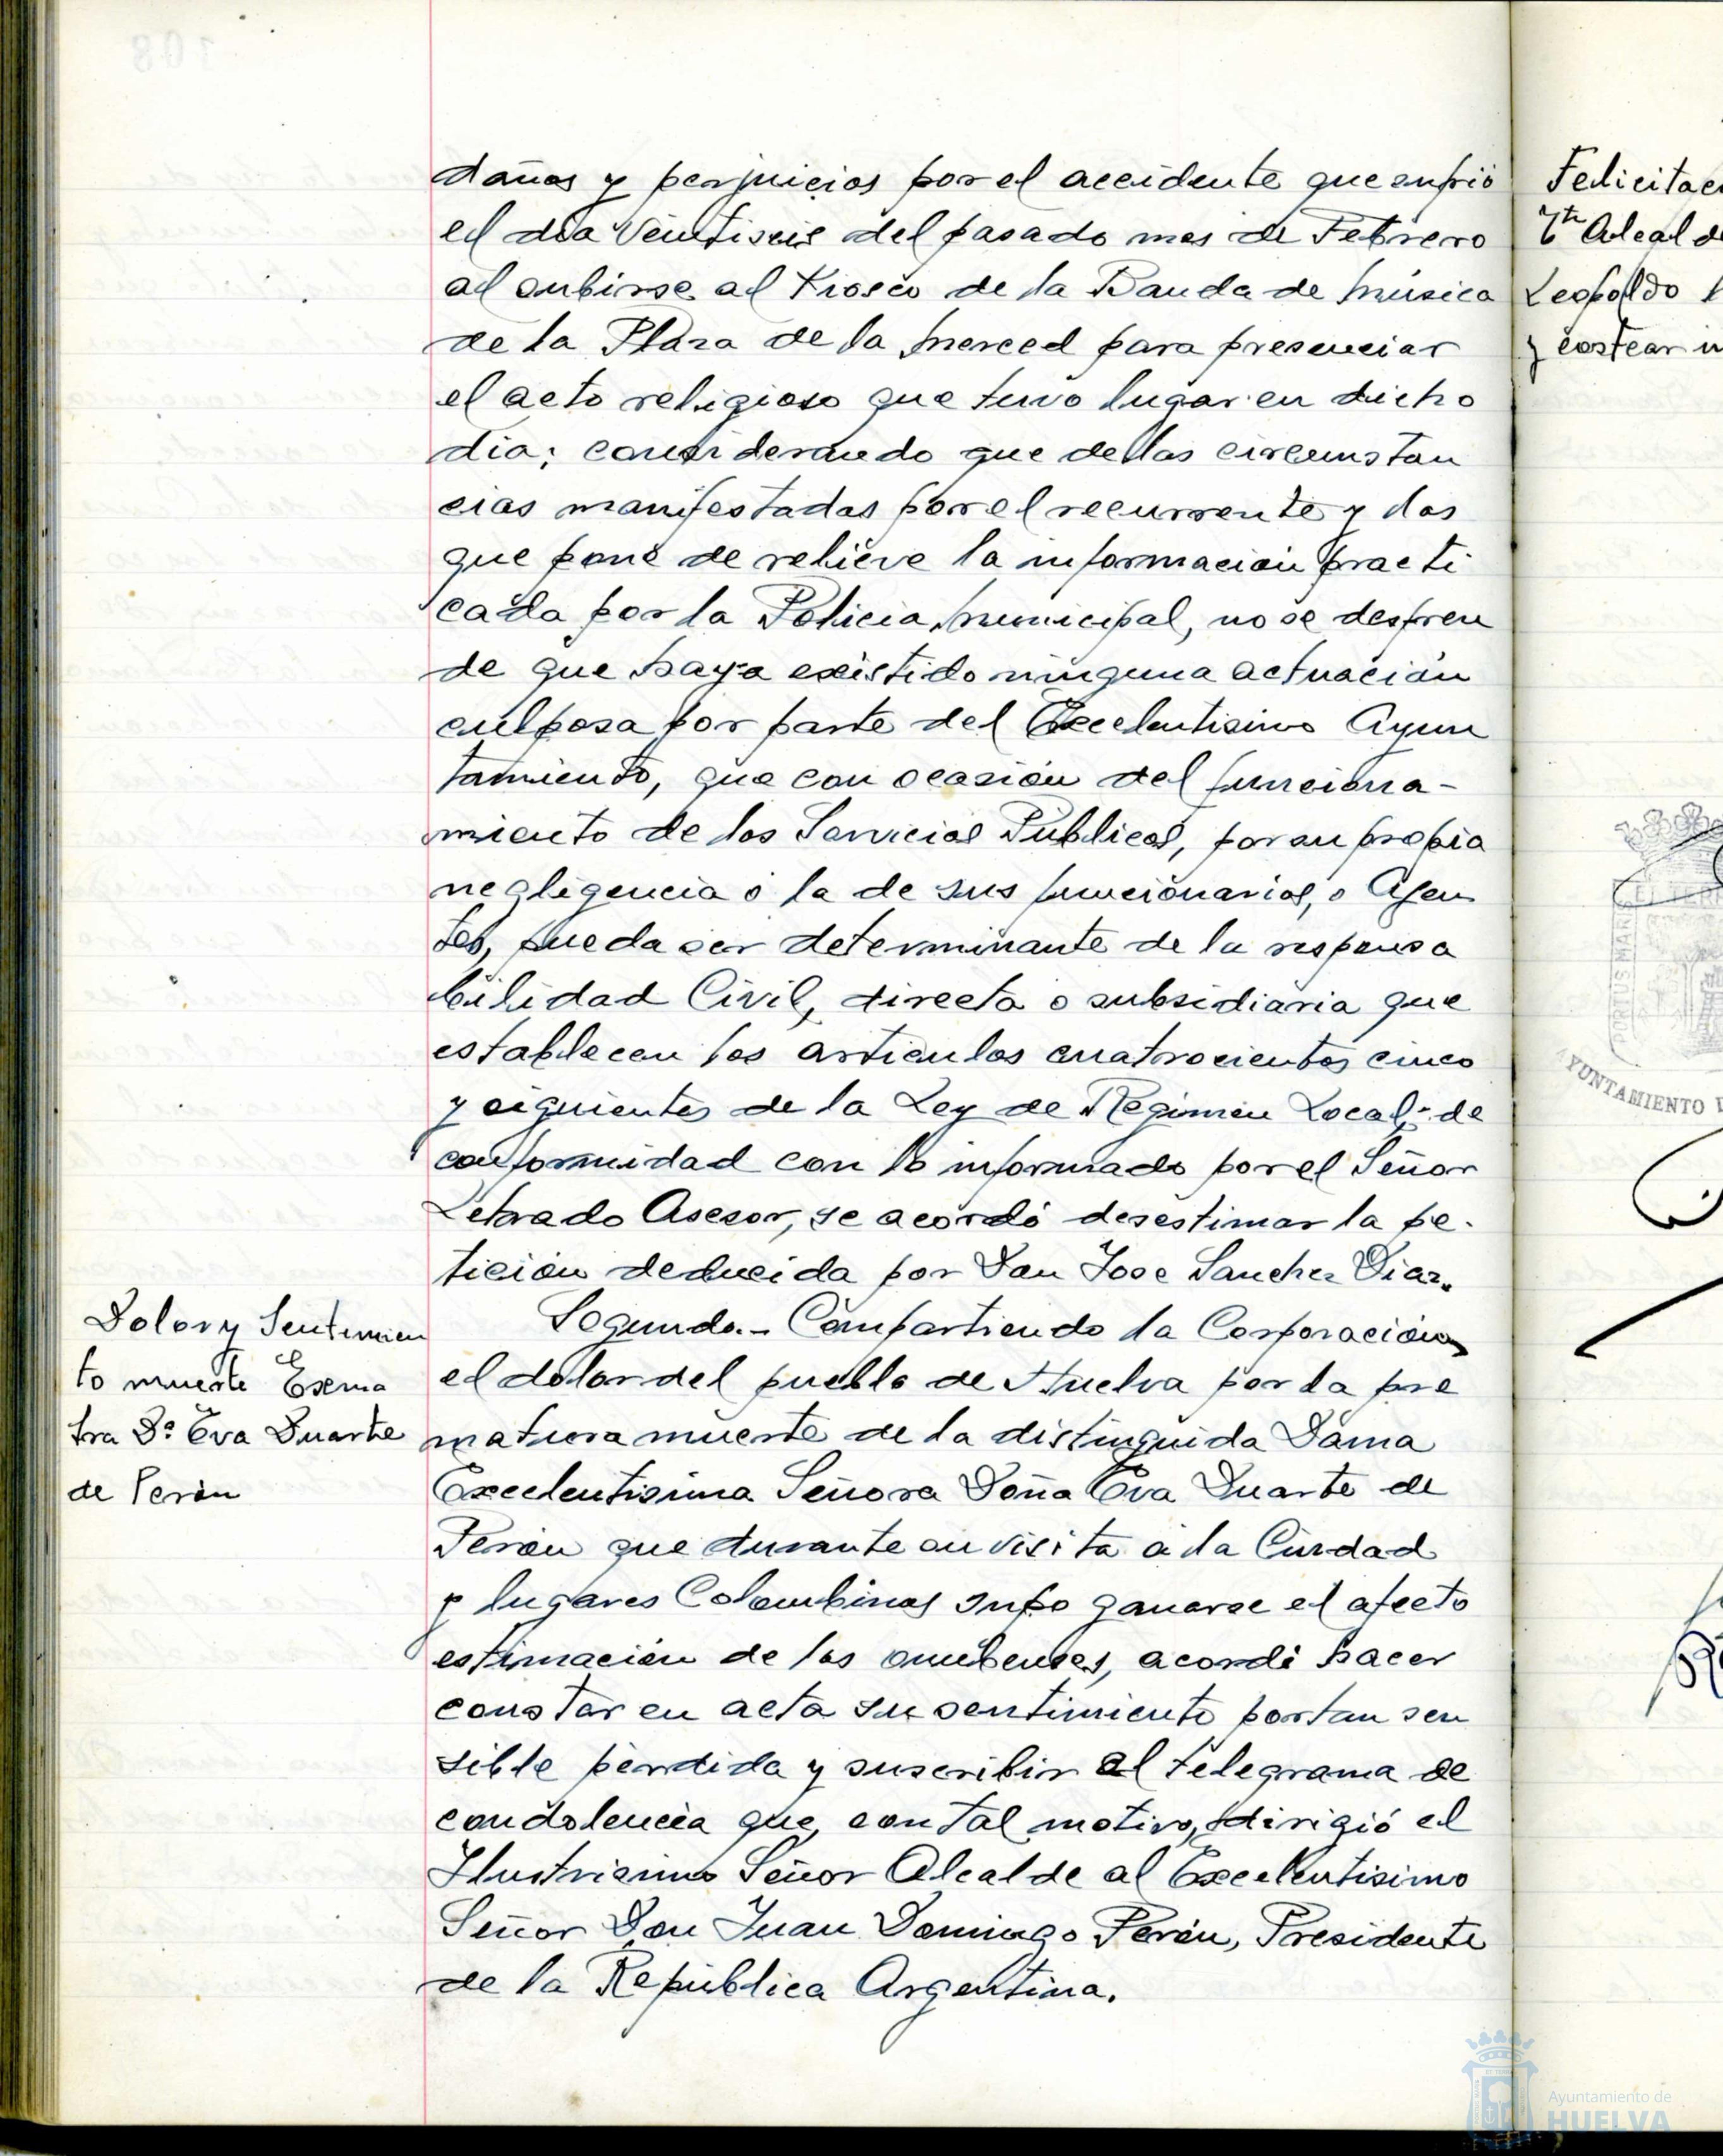 daños y perjuicios por el accidente que sufrió
el dia veintiseis del pasado mes de Febrero
al subirse al Kiosco de la Banda de música
de la Plaza de la Merced para presenciar
el acto religioso que tuvo lugar en dicho
dia; considerando que de las circunstan
cias manifestadas por el recurrente y las
que pone de relieve la información practi
cada por la Policia municipal, no se despren
de que haya existido ninguna actuación
culposa por parte del Excelentisimo Ayun
tamiento, que con ocasión del funciona-
miento de los Servicios Públicos, por su propia
negligencia ó la de sus funcionarios, o Agen
tes, pueda ser determinante de la responsa
bilidad Civil, directa o subsidiaria que
establecen los articulos cuatrocientos cinco
y siguientes de la Ley de Régimen Local; de
conformidad con lo informado por el Señor
Letrado Asesor, se acordó desestimar la pe-
tición deducida por Don Jose Sanchez Diaz.
Dolor y Sentimien
to muerte Excma
Sra Dª Eva Duarte
de Perón
Segundo.- Compartiendo la Corporación
el dolor del pueblo de Huelva por la pre
matura muerte de la distinguida Dama
Excelentisima Señora Doña Eva Duarte de
Perón que durante su visita a la Ciudad
y lugares Colombinos supo ganarse el afecto
estimación de los onubenses, acordó hacer
constar en acta su sentimiento por tan sen
sible pérdida y suscribir el telegrama de
condolencia que, con tal motivo, dirigió el
Ilustrisimo Señor Alcalde al Excelentisimo
Señor Don Juan Domingo Perón, Presidente
de la República Argentina.
Felicitac
Tte Alcalde
Leopoldo
y costear
AYUNTAMIENTO
Ayuntamiento de
HUELVA